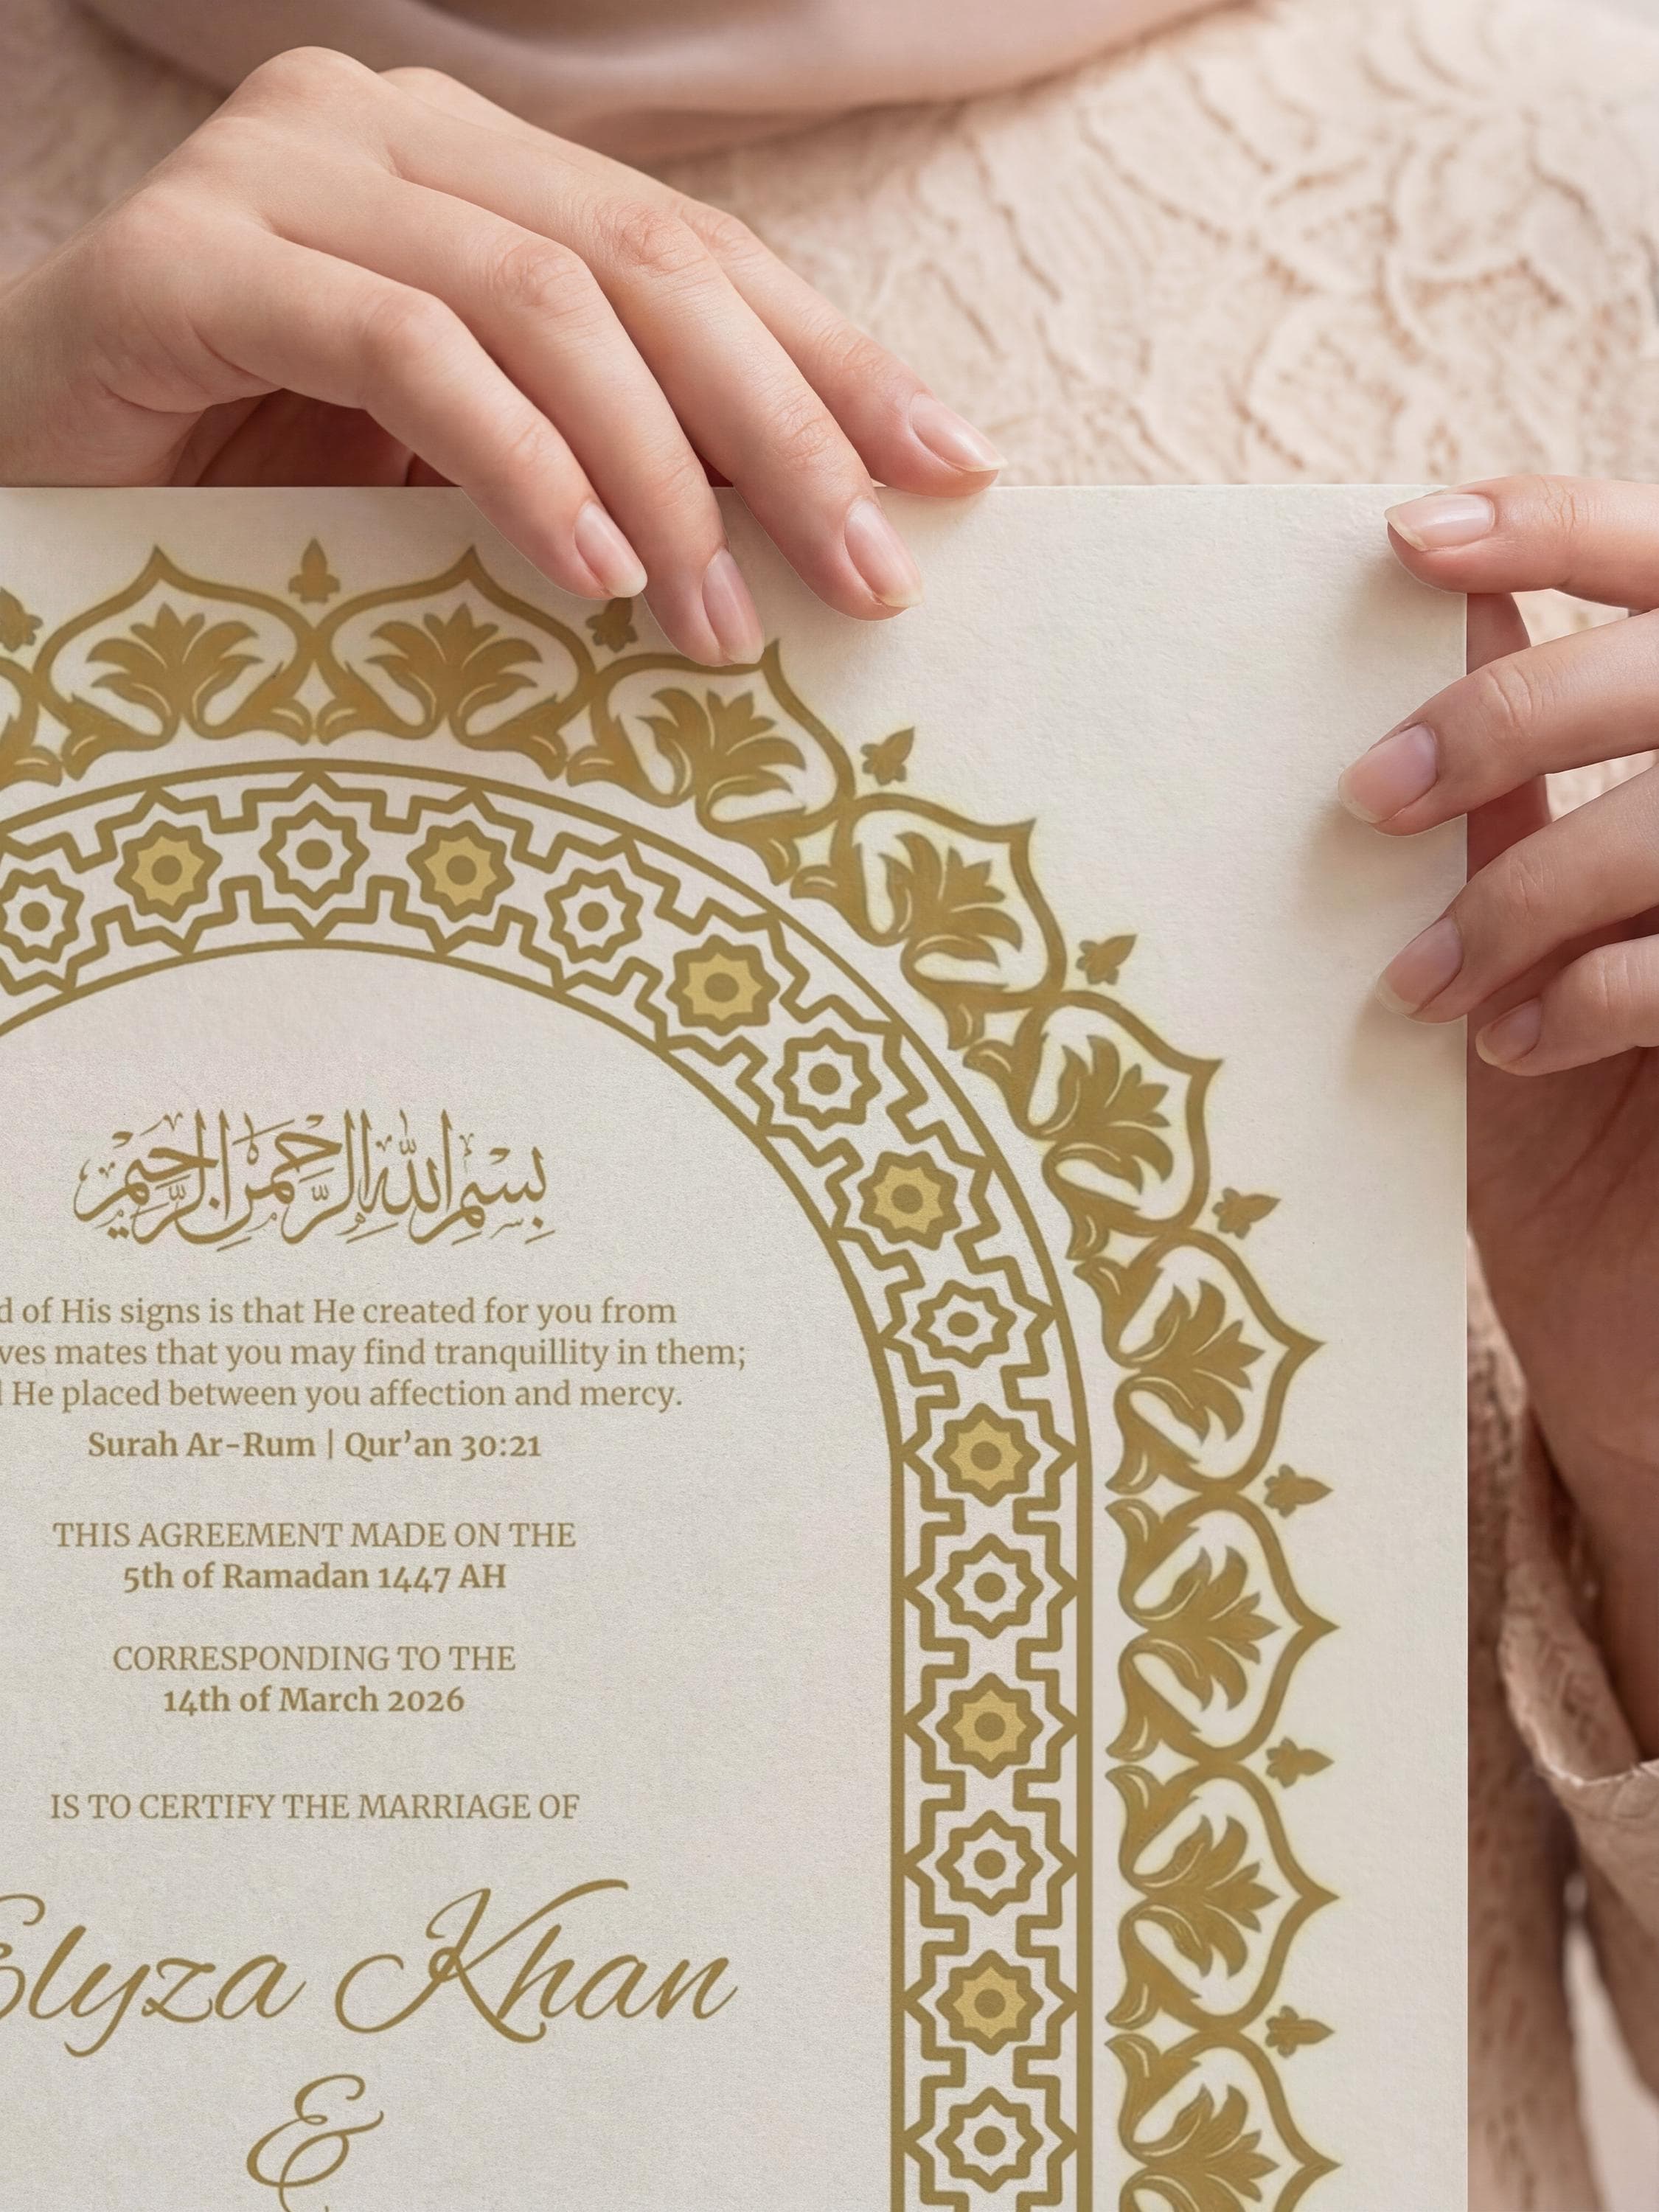 بِسْمِ اللهِ الرَّحْمٰنِ الرَّحِيْمِ
d of His signs is that He created for you from
ves mates that you may find tranquillity in them;
He placed between you affection and mercy.
Surah Ar-Rum | Qur’an 30:21
THIS AGREEMENT MADE ON THE
5th of Ramadan 1447 AH
CORRESPONDING TO THE
14th of March 2026
IS TO CERTIFY THE MARRIAGE OF
Elyza Khan
&